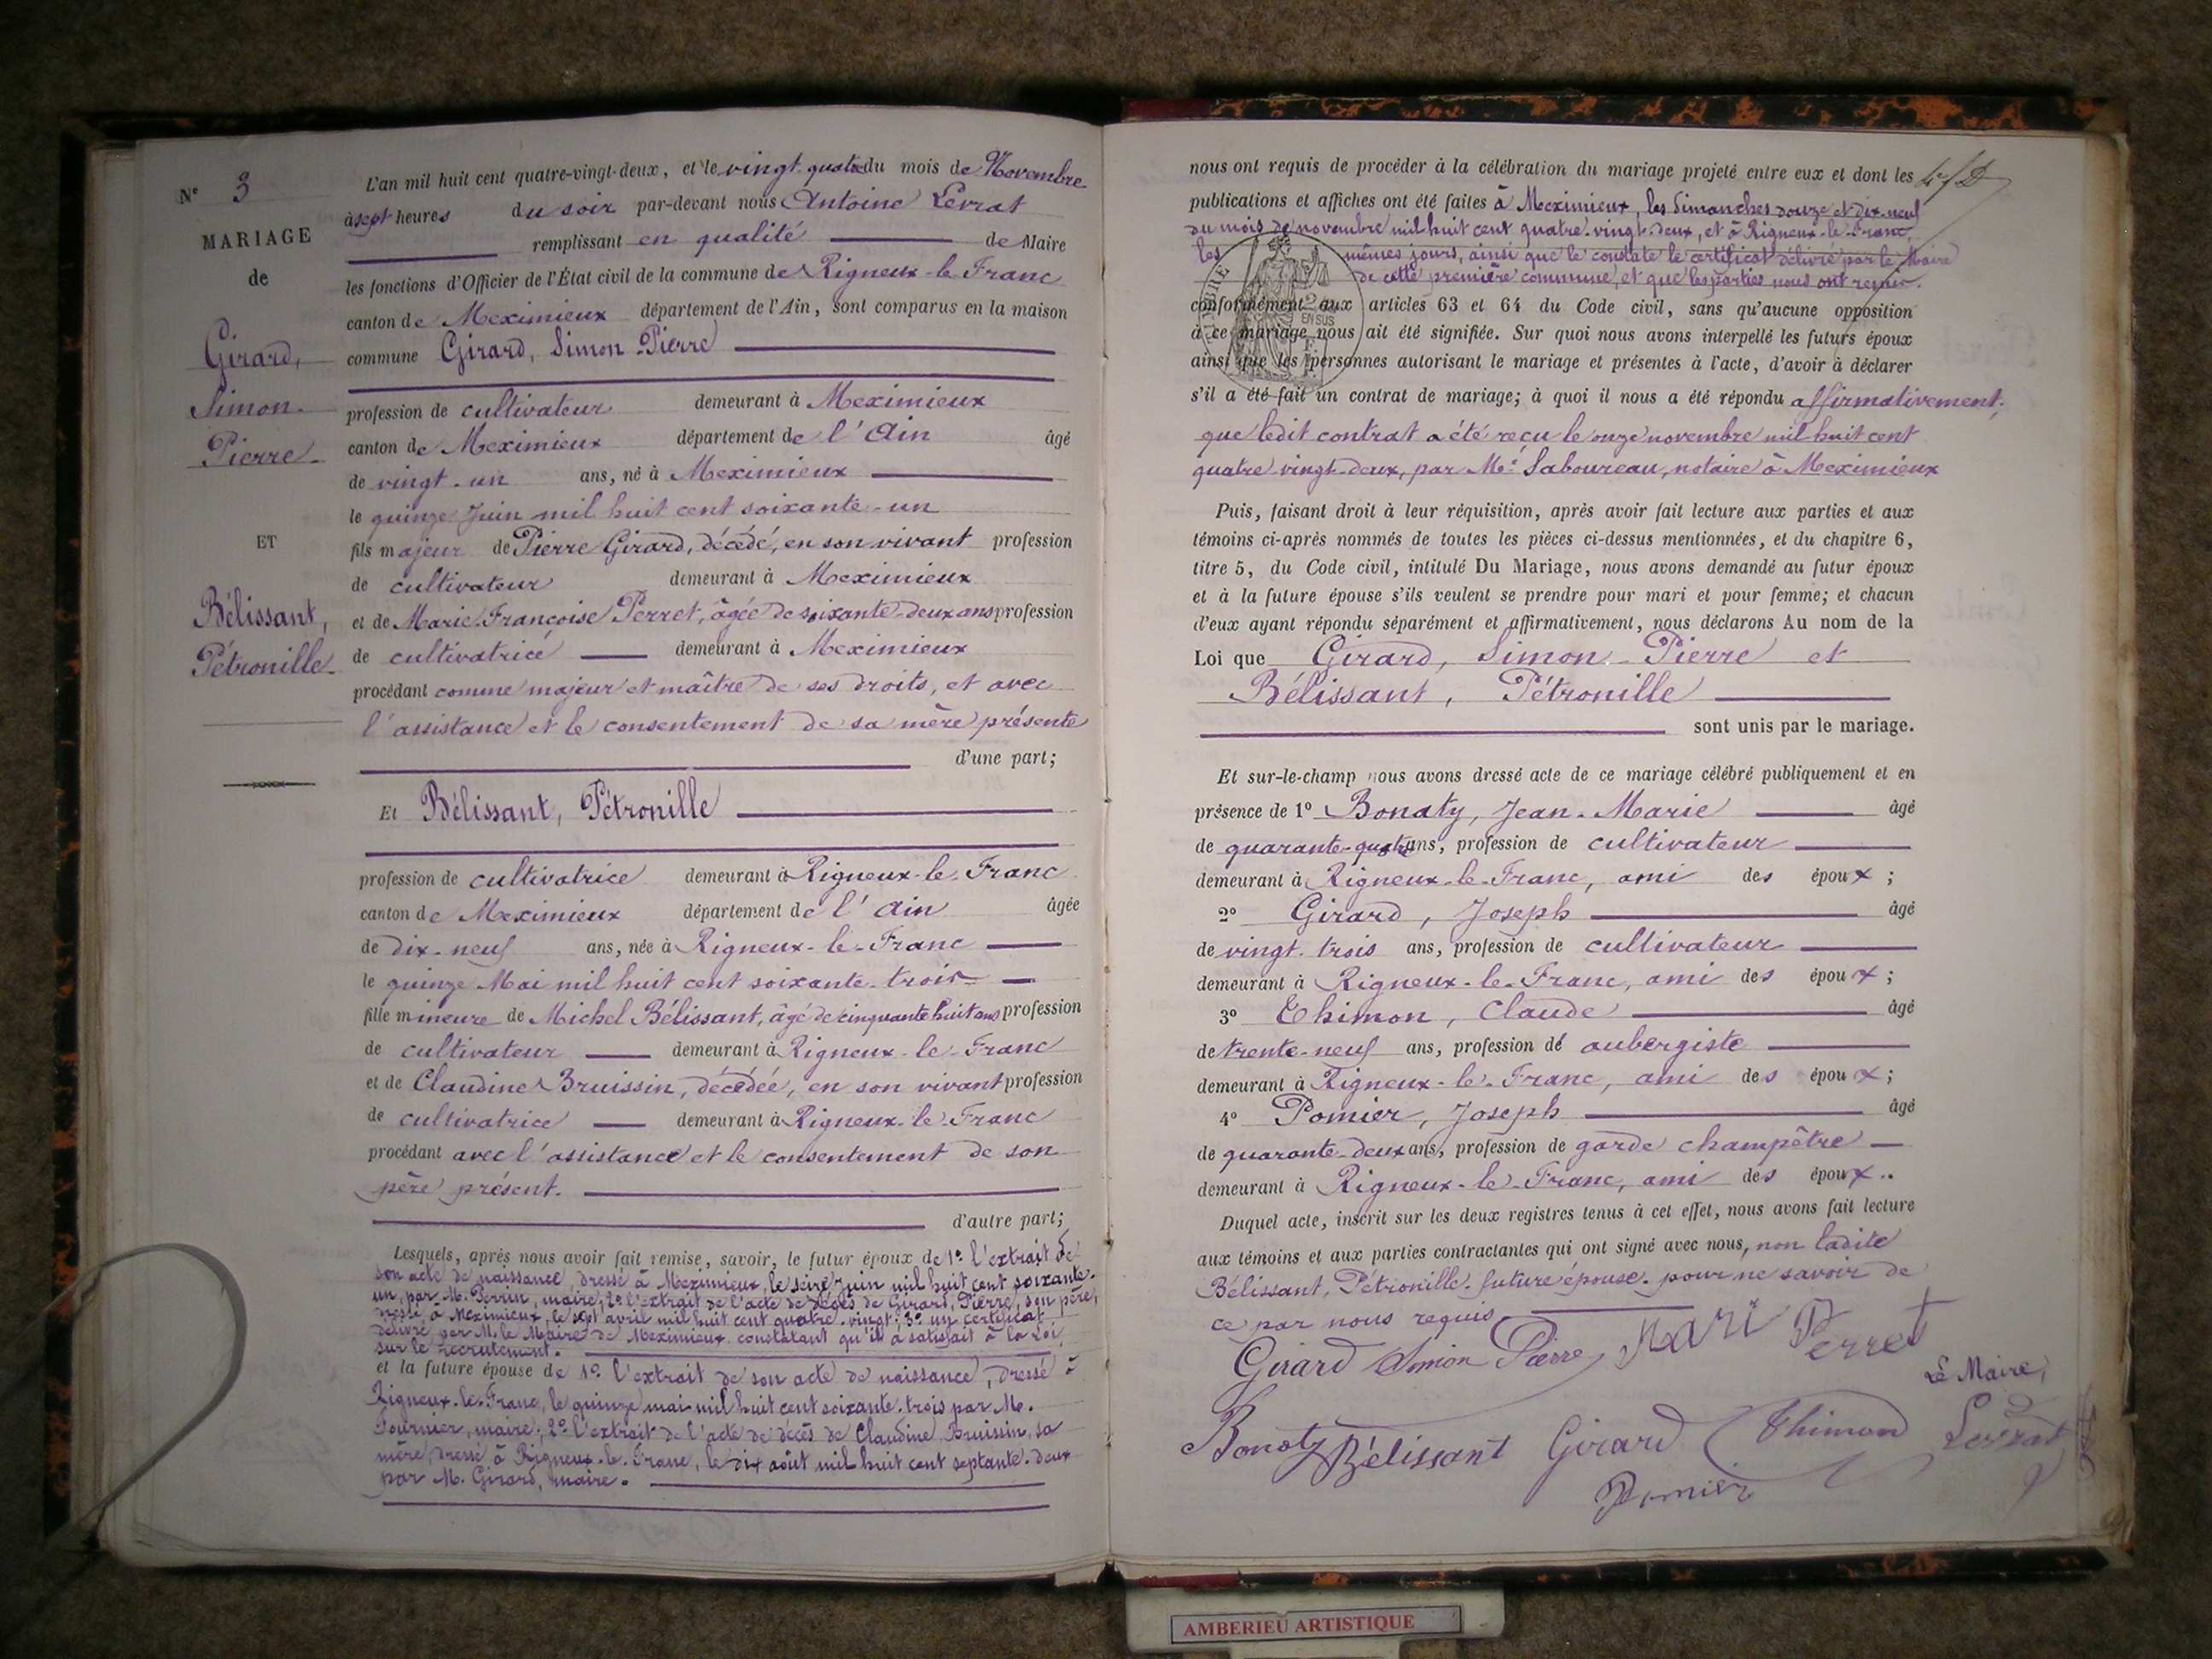 Nº 3
MARIAGE
de
Girard,
Simon-
Pierre
ET
Bélissant,
Pétronille
L'an mil huit cent quatre-vingt-deux, et le vingt-quatre du mois de Novembre
à sept heures du soir par-devant nous Antoine Levrat
remplissant en qualité de Maire
les fonctions d'Officier de l'État civil de la commune de Rigneux-le-Franc
canton de Meximieux département de l'Ain, sont comparus en la maison
commune Girard, Simon-Pierre
profession de cultivateur demeurant à Meximieux
canton de Meximieux département de l'Ain âgé
de vingt-un ans, né à Meximieux
le quinze Juin mil huit cent soixante-un
fils majeur de Pierre Girard, décédé, en son vivant profession
de cultivateur demeurant à Meximieux
et de Marie-Françoise Perret, âgée de soixante-deux ans profession
de cultivatrice demeurant à Meximieux
procédant comme majeur et maître de ses droits, et avec
l'assistance et le consentement de sa mère présente
d'une part;
Et Bélissant, Pétronille
profession de cultivatrice demeurant à Rigneux-le-Franc
canton de Meximieux département de l'Ain âgée
de dix-neuf ans, née à Rigneux-le-Franc
le quinze Mai mil huit cent soixante-trois
fille mineure de Michel Bélissant, âgé de cinquante huit ans profession
de cultivateur demeurant à Rigneux-le-Franc
et de Claudine Bruissin, décédée, en son vivant profession
de cultivatrice demeurant à Rigneux-le-Franc
procédant avec l'assistance et le consentement de son
père présent.
d'autre part;
Lesquels, après nous avoir fait remise, savoir, le futur époux de 1º l'extrait de
son acte de naissance, dressé à Meximieux, le seize Juin mil huit cent soixante-
un, par M. Perrin, maire; 2º l'extrait de l'acte de décès de Girard, Pierre, son père,
dressé à Meximieux, le sept avril mil huit cent quatre-vingt; 3º un certificat
délivré par M. le Maire de Meximieux constatant qu'il a satisfait à la Loi
sur le recrutement.
et la future épouse de 1º l'extrait de son acte de naissance, dressé à
Rigneux-le-Franc, le quinze mai mil huit cent soixante-trois par M.
Fournier, maire; 2º l'extrait de l'acte de décès de Claudine Bruissin, sa
mère, dressé à Rigneux-le-Franc, le dix août mil huit cent septante-deux
par M. Girard, maire.
nous ont requis de procéder à la célébration du mariage projeté entre eux et dont les
publications et affiches ont été faites à Meximieux, les Dimanches douze et dix-neuf
du mois de novembre mil huit cent quatre-vingt-deux, et à Rigneux-le-Franc,
les mêmes jours, ainsi que le constate le certificat délivré par le Maire
de cette première commune, et que les parties nous ont remis.
conformément aux articles 63 et 64 du Code civil, sans qu'aucune opposition
à ce mariage nous ait été signifiée. Sur quoi nous avons interpellé les futurs époux
ainsi que les personnes autorisant le mariage et présentes à l'acte, d'avoir à déclarer
s'il a été fait un contrat de mariage; à quoi il nous a été répondu affirmativement;
que ledit contrat a été reçu le onze novembre mil huit cent
quatre-vingt-deux, par Me Saboureau, notaire à Meximieux
Puis, faisant droit à leur réquisition, après avoir fait lecture aux parties et aux
témoins ci-après nommés de toutes les pièces ci-dessus mentionnées, et du chapitre 6,
titre 5, du Code civil, intitulé Du Mariage, nous avons demandé au futur époux
et à la future épouse s'ils veulent se prendre pour mari et pour femme; et chacun
d'eux ayant répondu séparément et affirmativement, nous déclarons Au nom de la
Loi que Girard, Simon-Pierre et
Bélissant, Pétronille
sont unis par le mariage.
Et sur-le-champ nous avons dressé acte de ce mariage célébré publiquement et en
présence de 1º Bonaty, Jean-Marie âgé
de quarante-quatre ans, profession de cultivateur
demeurant à Rigneux-le-Franc, ami des époux;
2º Girard, Joseph âgé
de vingt-trois ans, profession de cultivateur
demeurant à Rigneux-le-Franc, ami des époux;
3º Thimon, Claude âgé
de trente-neuf ans, profession de aubergiste
demeurant à Rigneux-le-Franc, ami des époux;
4º Pomier, Joseph âgé
de quarante-deux ans, profession de garde champêtre
demeurant à Rigneux-le-Franc, ami des époux..
Duquel acte, inscrit sur les deux registres tenus à cet effet, nous avons fait lecture
aux témoins et aux parties contractantes qui ont signé avec nous, non ladite
Bélissant, Pétronille, future épouse, pour ne savoir de
ce par nous requis
Girard Simon Pierre Mari Perret
Le Maire,
Bonaty Bélissant Girard Thimon Levrat
Pomier
AMBERIEU ARTISTIQUE